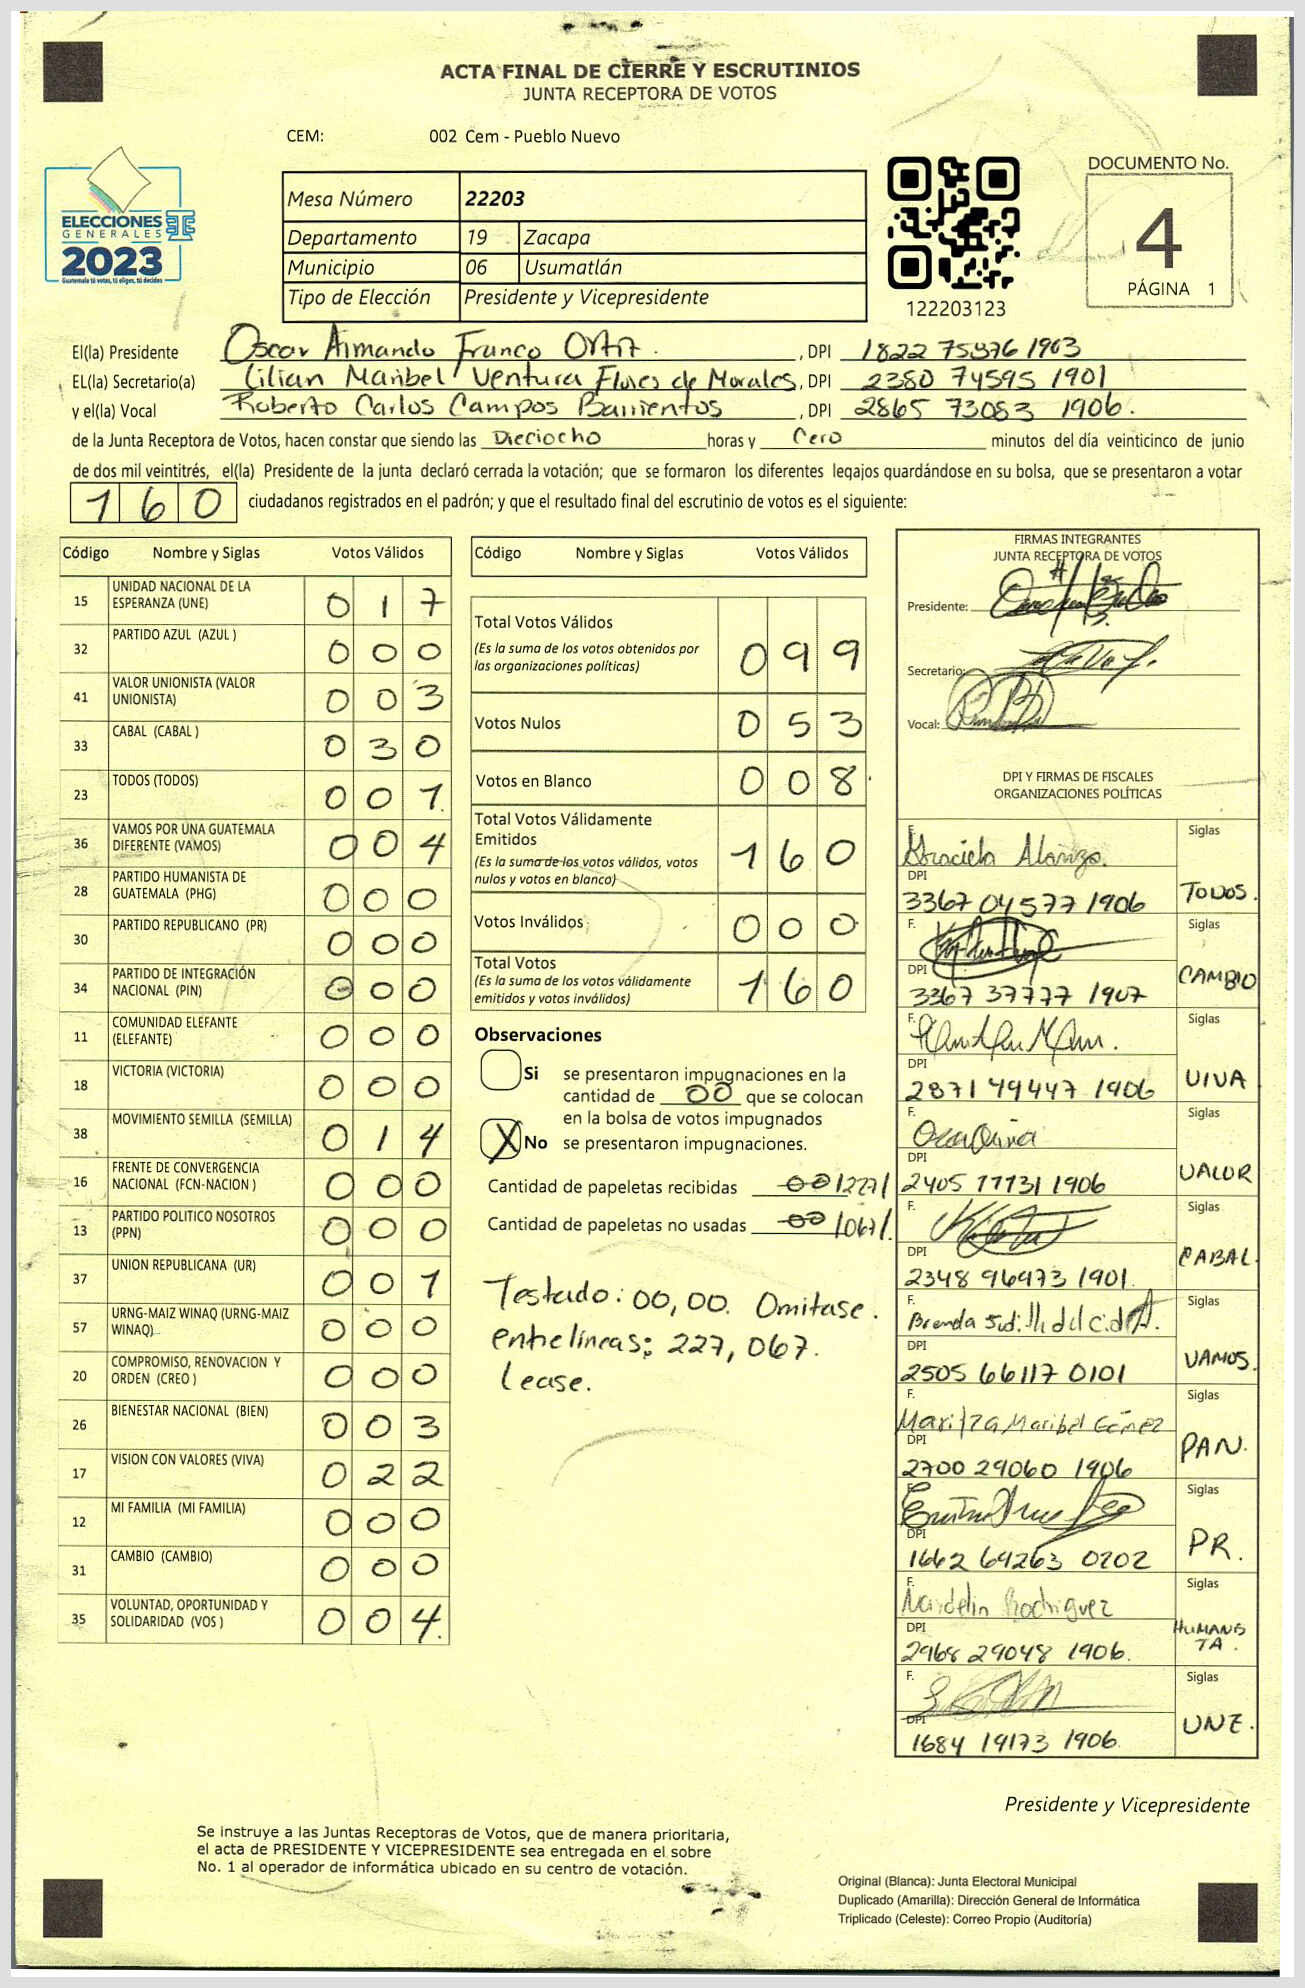 ACTA FINAL DE CIERRE Y ESCRUTINIOS
JUNTA RECEPTORA DE VOTOS
CEM: 002 Cem - Pueblo Nuevo
ELECCIONES
GENERALES
2023
Guatemala tú votas, tú eliges, tú decides
Mesa Número 22203
Departamento 19 Zacapa
Municipio 06 Usumatlán
Tipo de Elección Presidente y Vicepresidente
122203123
DOCUMENTO No.
4
PÁGINA 1
El(la) Presidente Oscar Armando Franco Ortiz. , DPI 1822 75876 1903
EL(la) Secretario(a) Lilian Maribel Ventura Flores de Morales, DPI 2380 74595 1901
y el(la) Vocal Roberto Carlos Campos Barrientos , DPI 2865 73083 1906.
de la Junta Receptora de Votos, hacen constar que siendo las Dieciocho horas y Cero minutos del día veinticinco de junio
de dos mil veintitrés, el(la) Presidente de la junta declaró cerrada la votación; que se formaron los diferentes legajos guardándose en su bolsa, que se presentaron a votar
160 ciudadanos registrados en el padrón; y que el resultado final del escrutinio de votos es el siguiente:
Código Nombre y Siglas Votos Válidos
15 UNIDAD NACIONAL DE LA ESPERANZA (UNE) 017
32 PARTIDO AZUL (AZUL ) 000
41 VALOR UNIONISTA (VALOR UNIONISTA) 003
33 CABAL (CABAL ) 030
23 TODOS (TODOS) 001
36 VAMOS POR UNA GUATEMALA DIFERENTE (VAMOS) 004
28 PARTIDO HUMANISTA DE GUATEMALA (PHG) 000
30 PARTIDO REPUBLICANO (PR) 000
34 PARTIDO DE INTEGRACIÓN NACIONAL (PIN) 000
11 COMUNIDAD ELEFANTE (ELEFANTE) 000
18 VICTORIA (VICTORIA) 000
38 MOVIMIENTO SEMILLA (SEMILLA) 014
16 FRENTE DE CONVERGENCIA NACIONAL (FCN-NACION ) 000
13 PARTIDO POLITICO NOSOTROS (PPN) 000
37 UNION REPUBLICANA (UR) 001
57 URNG-MAIZ WINAQ (URNG-MAIZ WINAQ) 000
20 COMPROMISO, RENOVACION Y ORDEN (CREO ) 000
26 BIENESTAR NACIONAL (BIEN) 003
17 VISION CON VALORES (VIVA) 022
12 MI FAMILIA (MI FAMILIA) 000
31 CAMBIO (CAMBIO) 000
35 VOLUNTAD, OPORTUNIDAD Y SOLIDARIDAD (VOS ) 004
Código Nombre y Siglas Votos Válidos
Total Votos Válidos 099
(Es la suma de los votos obtenidos por
las organizaciones políticas)
Votos Nulos 053
Votos en Blanco 008
Total Votos Válidamente
Emitidos 160
(Es la suma de los votos válidos, votos
nulos y votos en blanco)
Votos Inválidos 000
Total Votos 160
(Es la suma de los votos válidamente
emitidos y votos inválidos)
Observaciones
Si se presentaron impugnaciones en la
cantidad de 00 que se colocan
en la bolsa de votos impugnados
X No se presentaron impugnaciones.
Cantidad de papeletas recibidas 00 /227/
Cantidad de papeletas no usadas 00 /067/.
Testado: 00, 00. Omitase.
entrelineas: 227, 067.
Lease.
FIRMAS INTEGRANTES
JUNTA RECEPTORA DE VOTOS
Presidente:
Secretario:
Vocal:
DPI Y FIRMAS DE FISCALES
ORGANIZACIONES POLÍTICAS
F. Siglas
DPI
3367 04577 1906 TODOS.
F. Siglas
DPI
3367 37777 1907 CAMBIO
F. Siglas
DPI
2871 49447 1906 VIVA
F. Siglas
DPI
2405 77731 1906 VALOR
F. Siglas
DPI
2348 96973 1901 CABAL.
F. Brenda Siglas
DPI
2505 66117 0101 VAMOS.
F. Maritza Maribel Gómez Siglas
DPI
2700 29060 1906 PAN.
Siglas
DPI
1662 69263 0202 PR.
F. Nardelin Rodriguez Siglas
DPI
2968 29048 1906. HUMANISTA.
F. Siglas
DPI
1684 19173 1906 UNE.
Presidente y Vicepresidente
Se instruye a las Juntas Receptoras de Votos, que de manera prioritaria,
el acta de PRESIDENTE Y VICEPRESIDENTE sea entregada en el sobre
No. 1 al operador de informática ubicado en su centro de votación.
Original (Blanca): Junta Electoral Municipal
Duplicado (Amarilla): Dirección General de Informática
Triplicado (Celeste): Correo Propio (Auditoría)